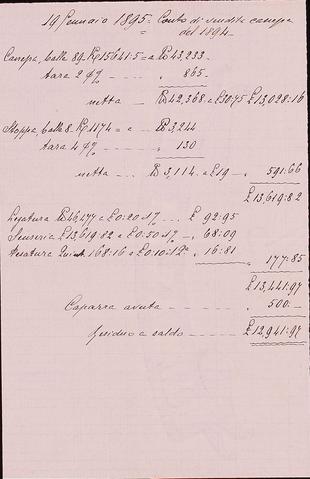 19 Gennaio 1895. Conto di vendita canepa
= del 1894 =
Canepa, balle 89. Kg 15641:5 = a ℔ 43,233.
tara 2 % - - - - „ 865.
netta - - ℔ 42,368. a £ 30:75 £ 13,028:16
Stoppa, balle 8. Kg 1174 = a - - ℔ 3,244
tara 4 % - - - - „ 130
netta - - ℔ 3,114. a £ 19 - „ 591:66
£ 13,619:82
£ 46,477 a £ 0:20 - - £ 92:95
Senseria £ 13,619:82 a £ 0:50 - „ 68:09
168:16 a £ 0:10 „ 16:81
„ 177:85
£ 13,441:97
Caparra avuta - - - - - „ 500:-
Residuo a saldo - - - - £ 12,941:97